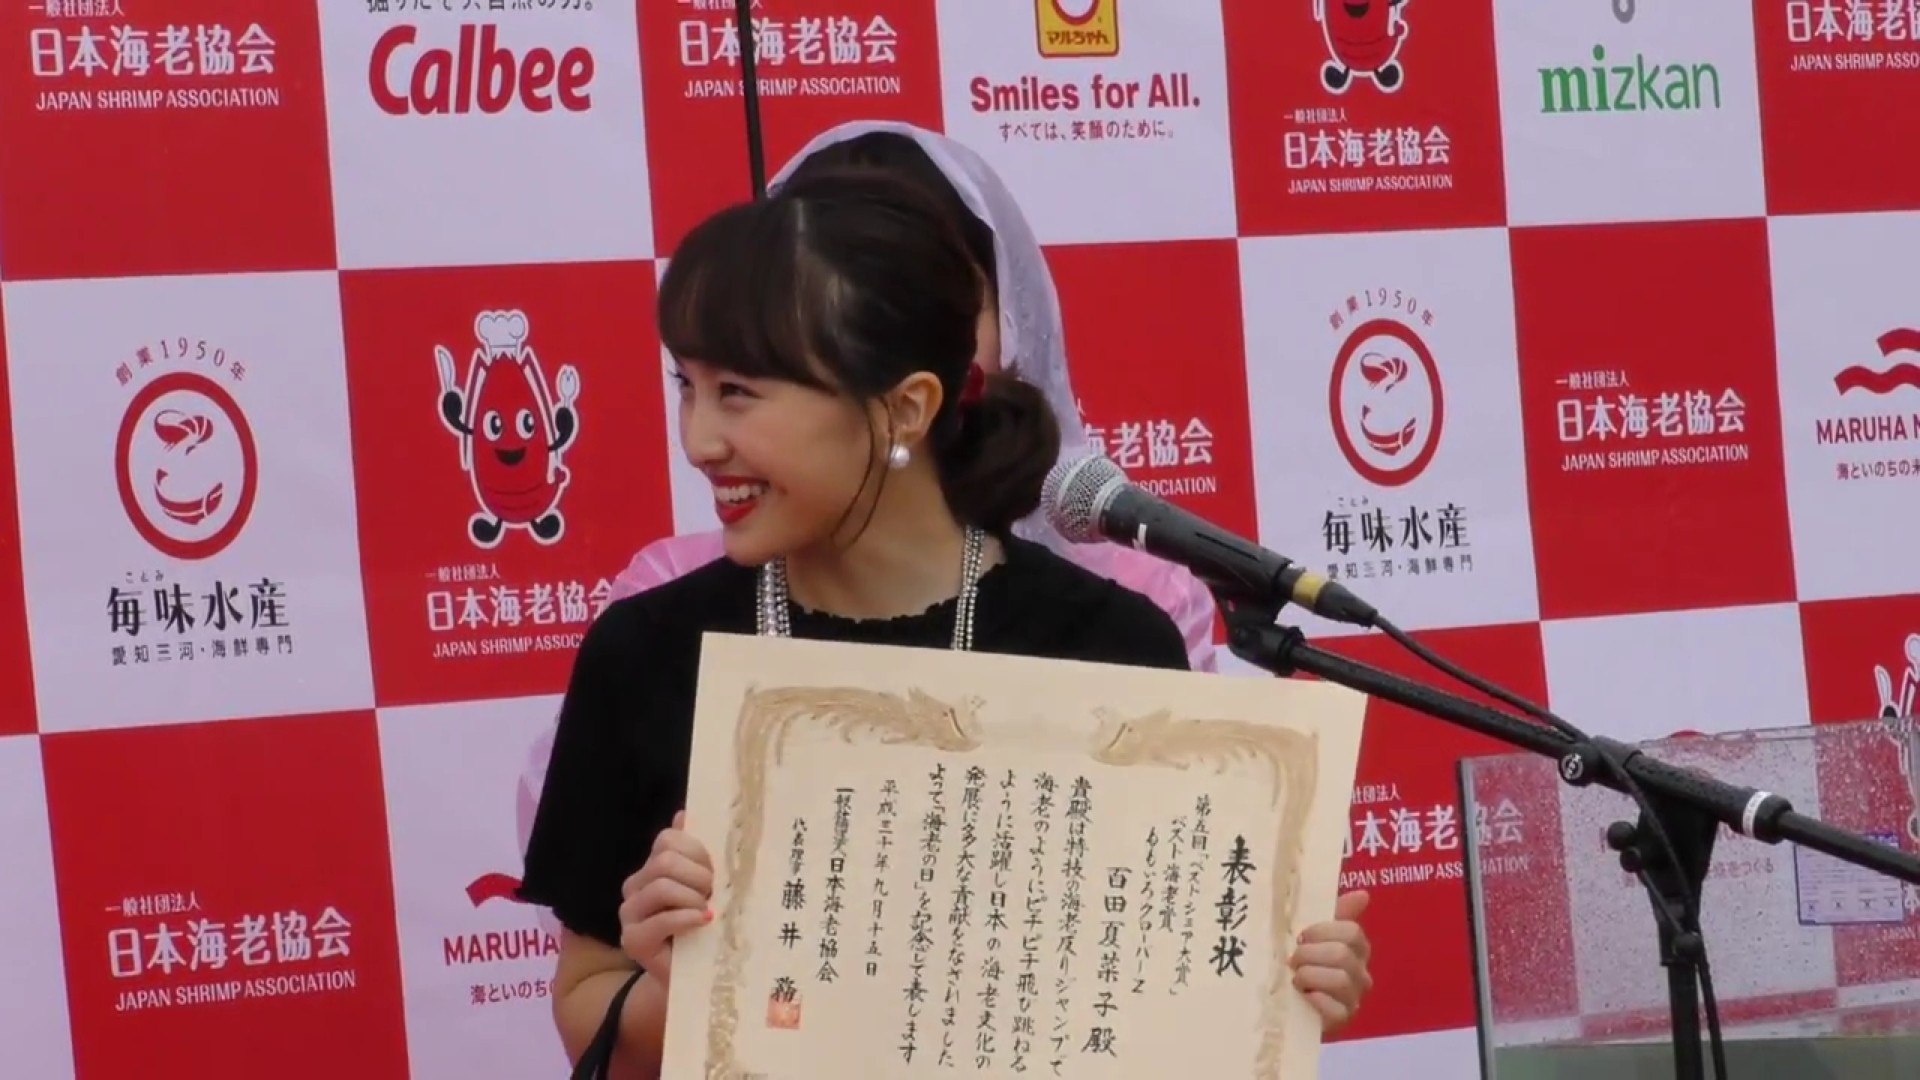 一般社団法人
日本海老協会
JAPAN SHRIMP ASSOCIATION
Calbee
日本海老協会
JAPAN SHRIMP ASSOCIATION
マルちゃん
Smiles for All.
すべては、笑顔のために。
一般社団法人
日本海老協会
JAPAN SHRIMP ASSOCIATION
mizkan
日本海老
JAPAN SHRIMP ASSO
創業1950年
ことみ
毎味水産
愛知三河・海鮮専門
一般社団法人
日本海老協会
JAPAN SHRIMP ASSOCI
海老協会
SOCIATION
創業1950年
ことみ
毎味水産
愛知三河・海鮮専門
一般社団法人
日本海老協会
JAPAN SHRIMP ASSOCIATION
MARUHA N
海といのちの未
一般社団法人
日本海老協会
JAPAN SHRIMP ASSOCIATION
MARUHA
海といのちの
社団法人
本海老協会
APAN SHRIMP ASSOCIATION
表彰状
第五回「ベストシュリンプ大賞」
ベスト海老賞
ももいろクローバーZ
百田夏菜子殿
貴殿は特技の海老反りジャンプで
海老のようにピチピチ飛び跳ねる
ように活躍し日本の海老文化の
発展に多大な貢献をなされました
よって「海老の日」を記念して表します
平成三十年九月十五日
一般社団法人日本海老協会
代表理事 藤井 務